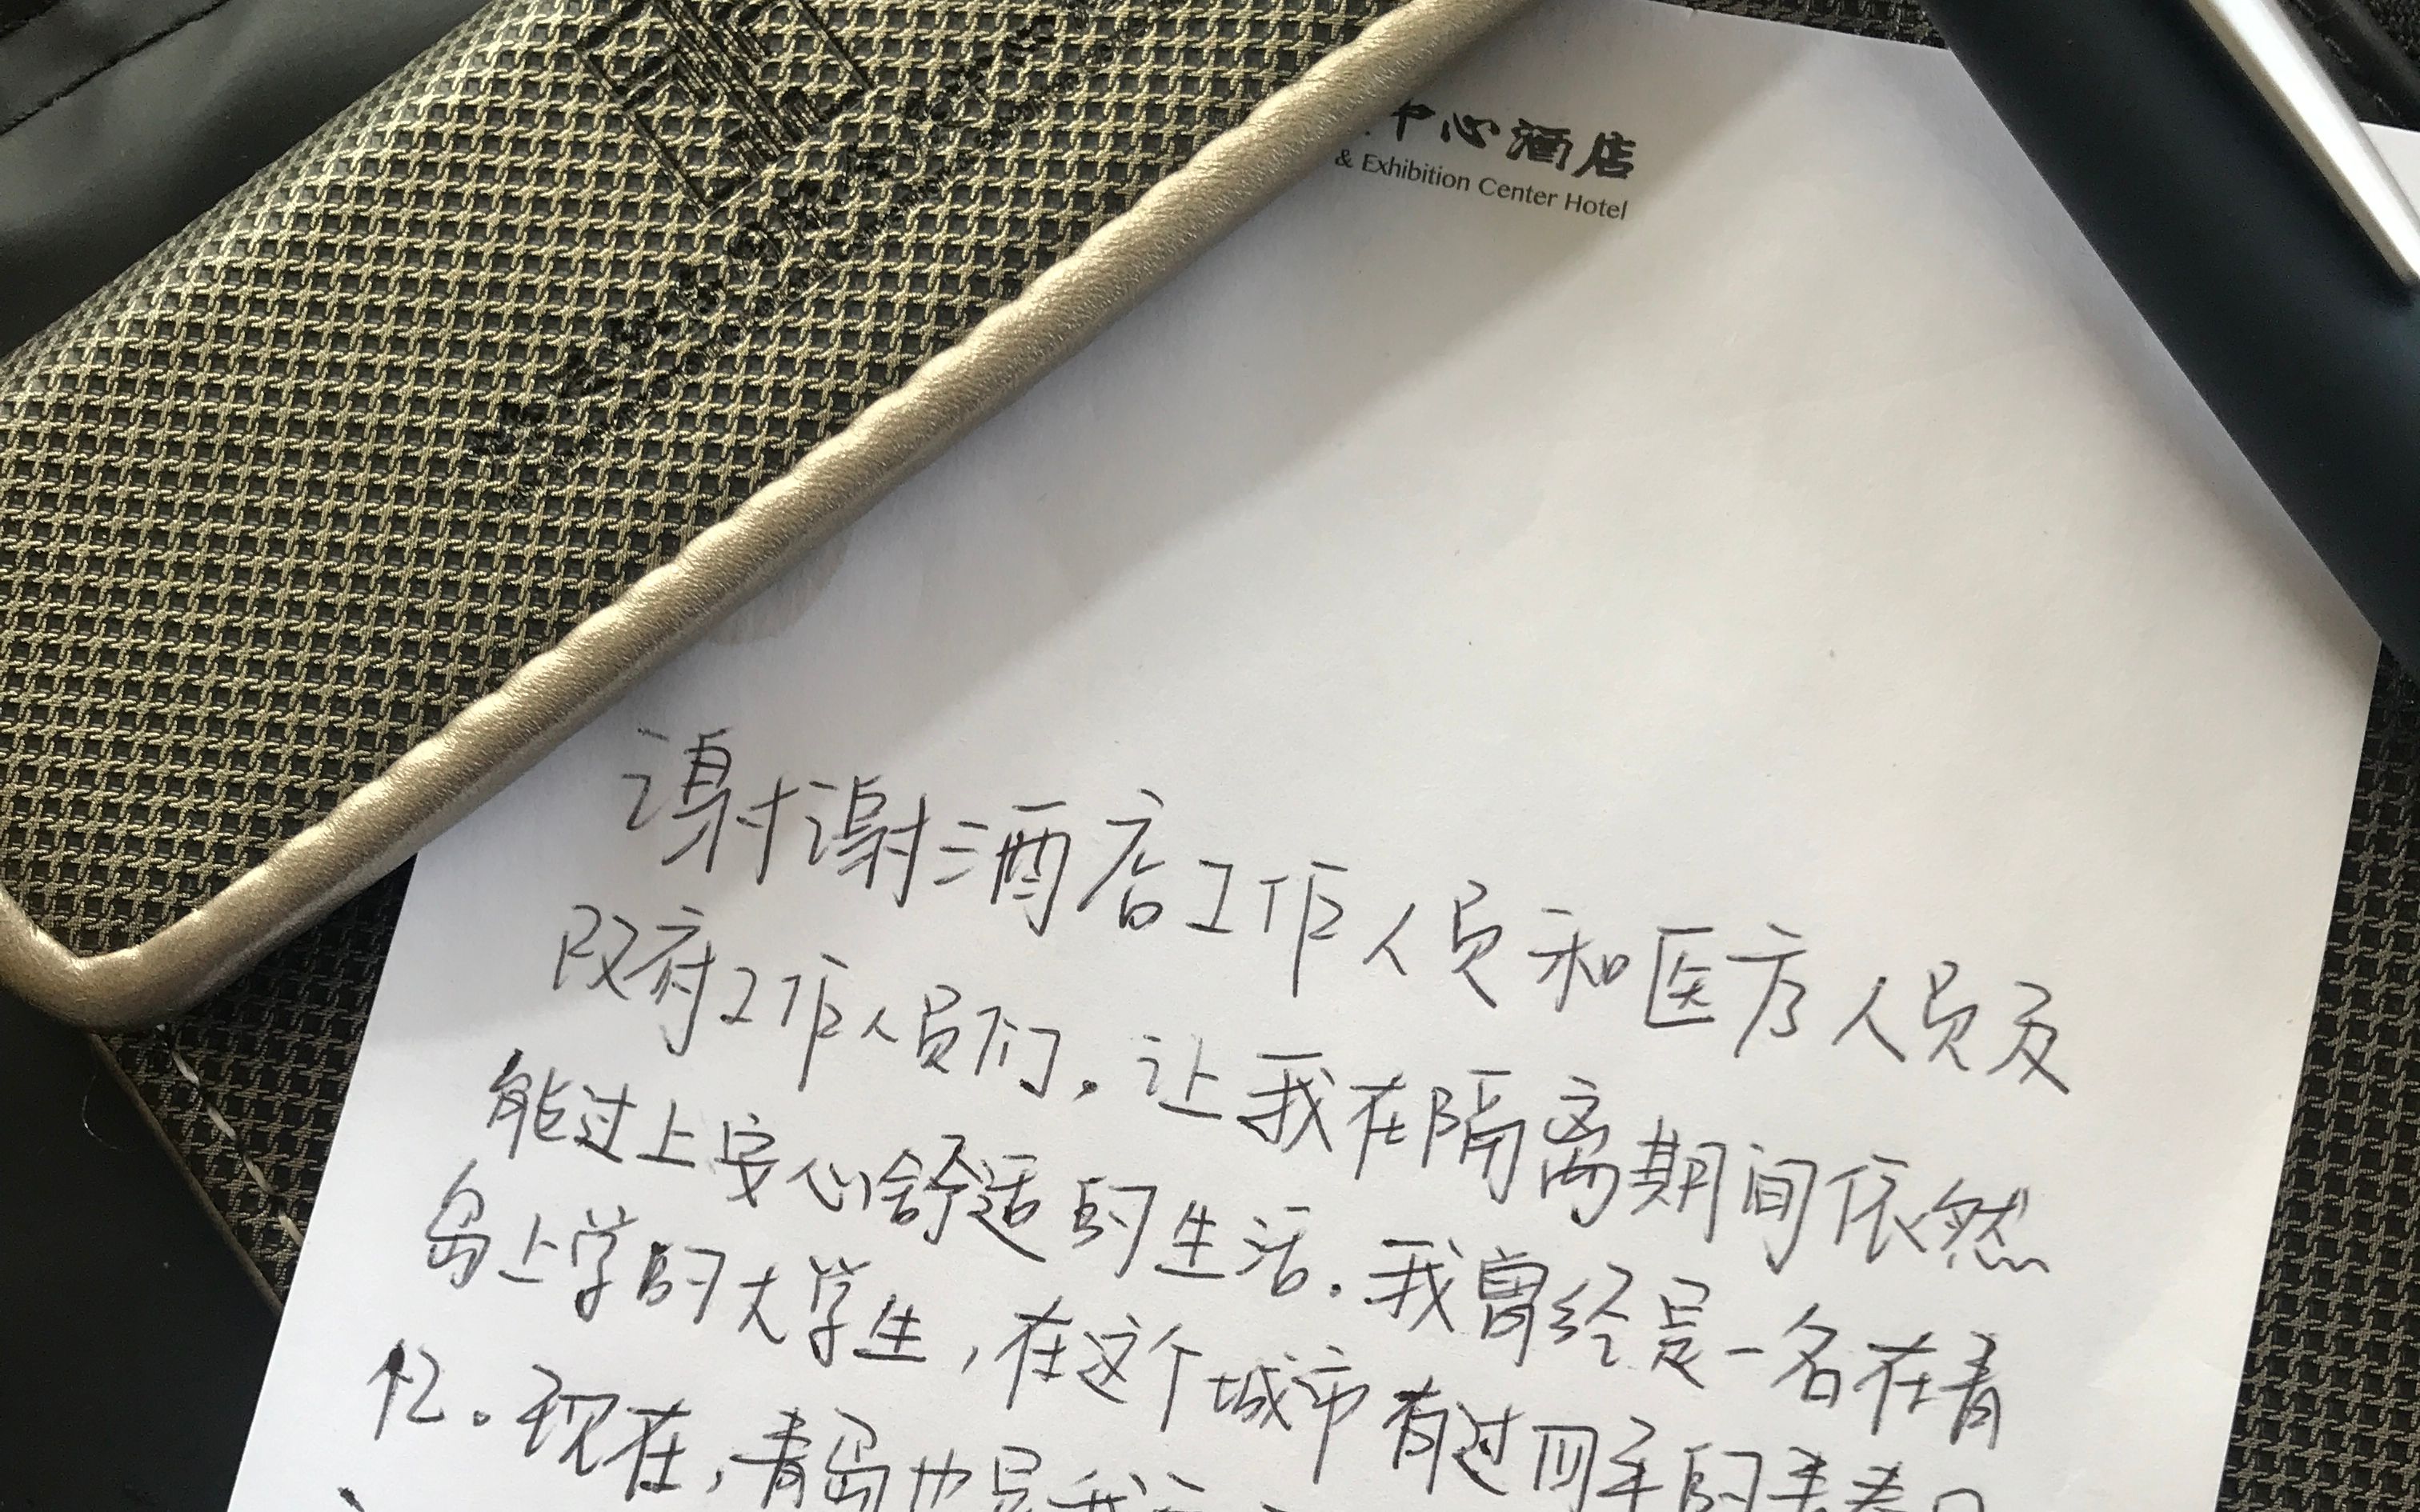 中心酒店
& Exhibition Center Hotel
谢谢酒店工作人员和医疗人员及
政府工作人员们，让我在隔离期间依然
能过上安心舒适的生活．我曾经是一名在青
岛上学的大学生，在这个城市有过四年的青春
忆。现在，青岛也是我